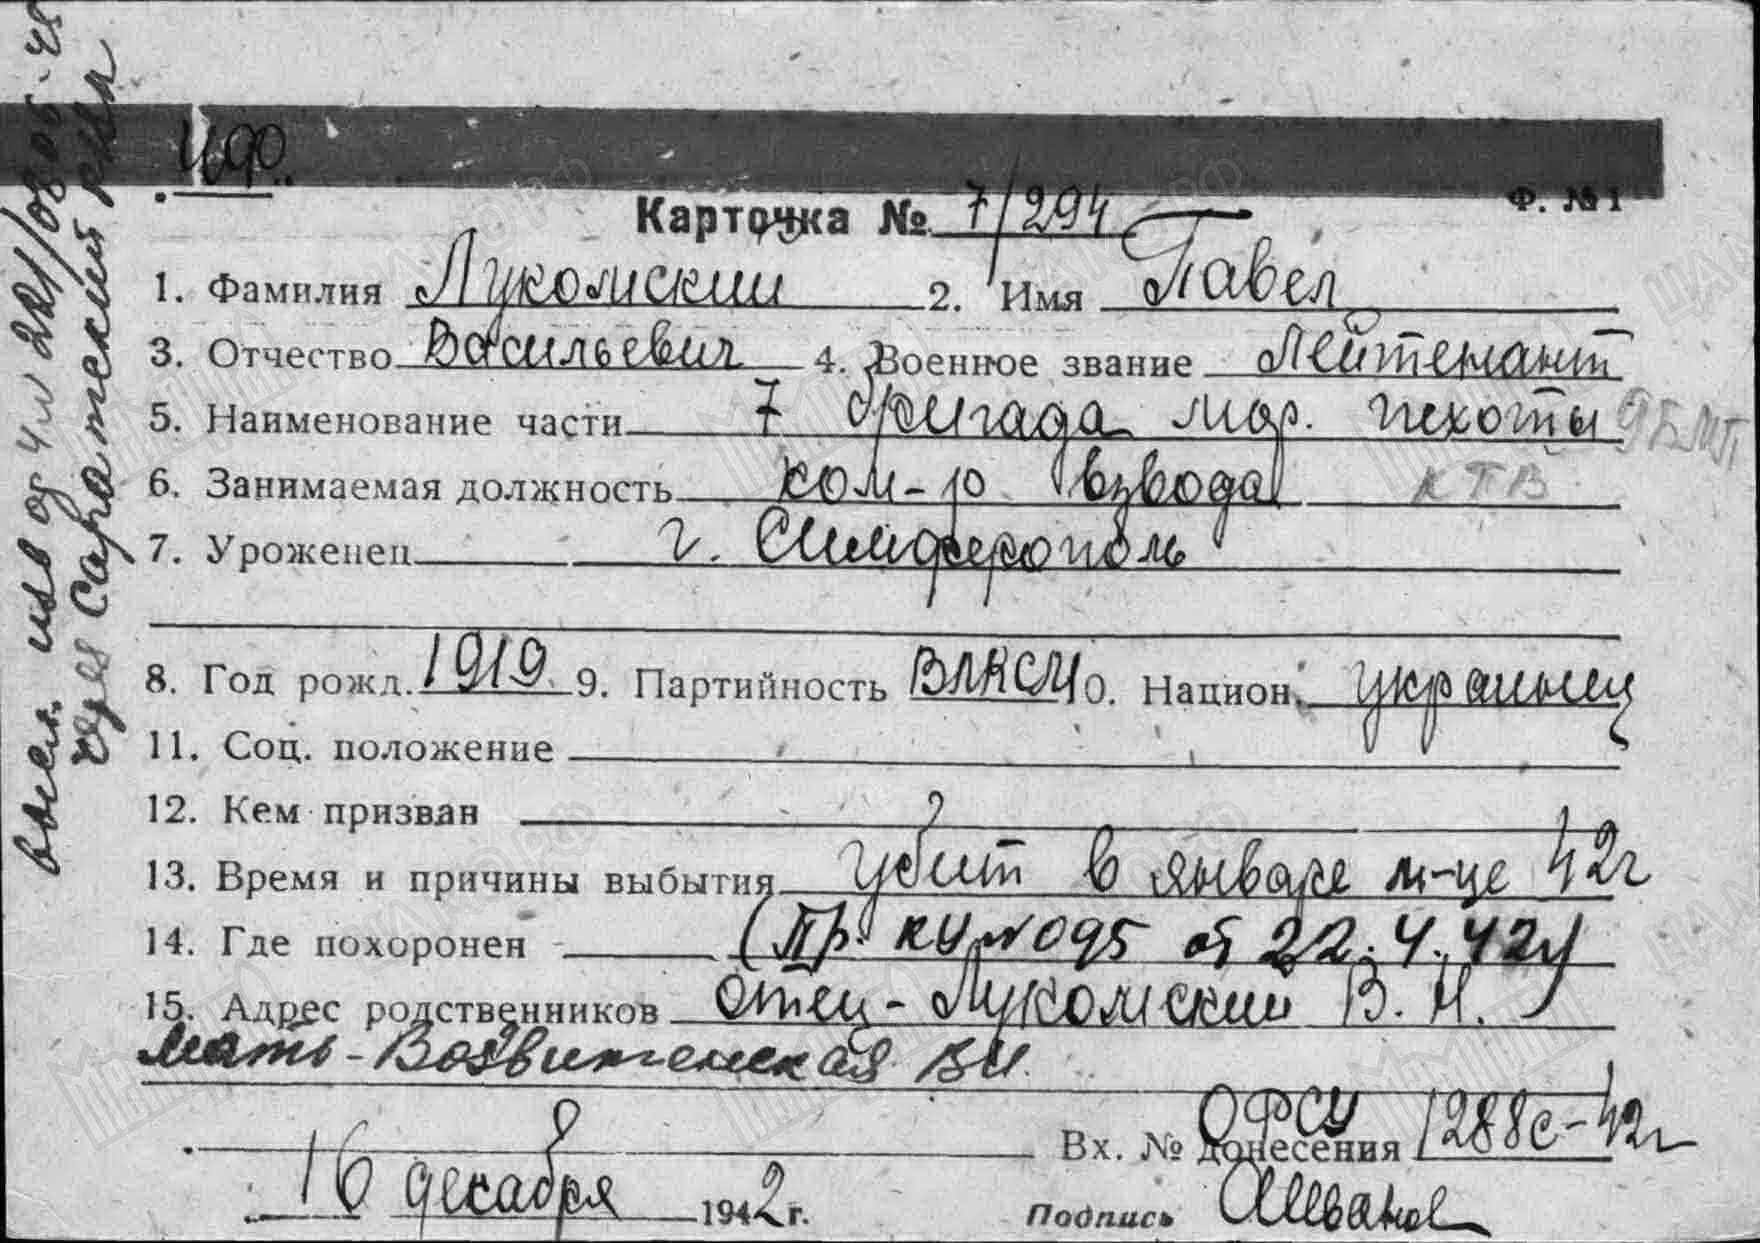 Ф. №1
Карточка № 7/294
1. Фамилия Лукомский 2. Имя Павел
3. Отчество Васильевич 4. Военное звание Лейтенант
5. Наименование части 7 бригада мор. пехоты 9БМП
6. Занимаемая должность ком-р взвода КТВ
7. Уроженец г. Симферополь
8. Год рожд. 1919 9. Партийность ВЛКСМ 10. Национ. украинец
11. Соц. положение
12. Кем призван
13. Время и причины выбытия Убит в январе м-це 42г
14. Где похоронен (Пр. КУ №095 от 22.4.42г)
15. Адрес родственников Отец - Лукомский В. И.
мать - Воздвиженская В И.
ОФСУ
Вх. № донесения 1288с-42г
16 декабря 1942 г.
Подпись